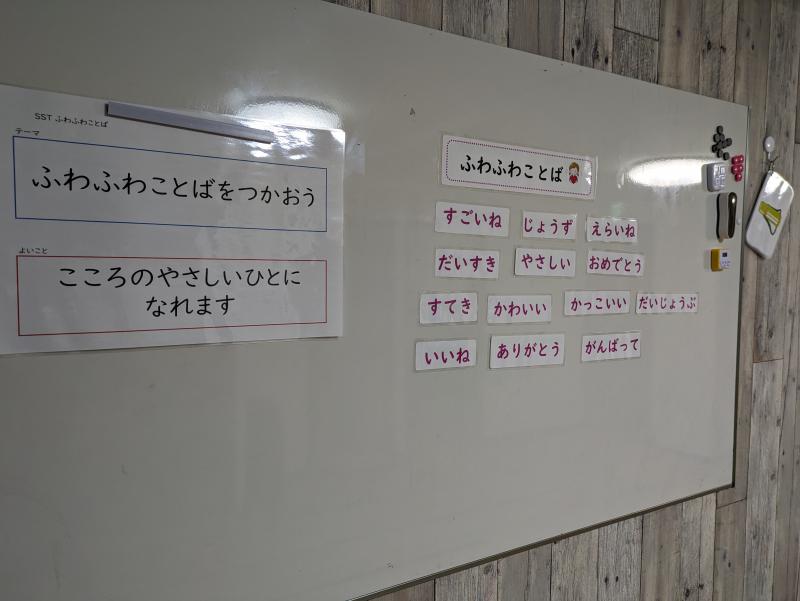 SST ふわふわことば
テーマ
ふわふわことばをつかおう
よいこと
こころのやさしいひとに
なれます
ふわふわことば
すごいね じょうず えらいね
だいすき やさしい おめでとう
すてき かわいい かっこいい だいじょうぶ
いいね ありがとう がんばって